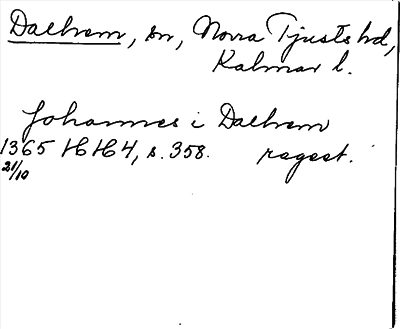 Dalhem, sn, Norra Tjusts hd,
Kalmar l.
Johannes i Dalhem
1365 HH4, s. 358. regest.
21/10